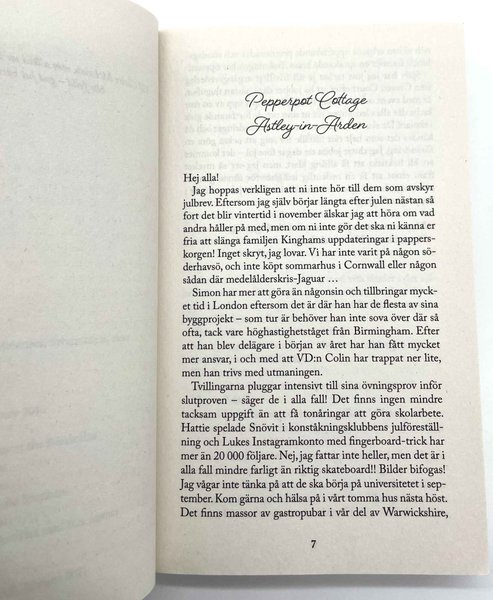 Pepperpot Cottage
Astley-in-Arden
Hej alla!
Jag hoppas verkligen att ni inte hör till dem som avskyr
julbrev. Eftersom jag själv börjar längta efter julen nästan så
fort det blir vintertid i november älskar jag att höra om vad
andra håller på med, men om ni inte gör det ska ni känna er
fria att slänga familjen Kinghams uppdateringar i pappers-
korgen! Inget skryt, jag lovar. Vi har inte varit på någon sö-
derhavsö, och inte köpt sommarhus i Cornwall eller någon
sådan där medelålderskris-Jaguar …
Simon har mer att göra än någonsin och tillbringar myck-
et tid i London eftersom det är där han har de flesta av sina
byggprojekt – som tur är behöver han inte sova över där så
ofta, tack vare höghastighetståget från Birmingham. Efter
att han blev delägare i början av året har han fått mycket
mer ansvar, i och med att VD:n Colin har trappat ner lite,
men han trivs med utmaningen.
Tvillingarna pluggar intensivt till sina övningsprov inför
slutproven – säger de i alla fall! Det finns ingen mindre
tacksam uppgift än att få tonåringar att göra skolarbete.
Hattie spelade Snövit i konståkningsklubbens julföreställ-
ning och Lukes Instagramkonto med fingerboard-trick har
mer än 20 000 följare. Nej, jag fattar inte heller, men det är i
alla fall mindre farligt än riktig skateboard!! Bilder bifogas!
Jag vågar inte tänka på att de ska börja på universitetet i sep-
tember. Kom gärna och hälsa på i vårt tomma hus nästa höst.
Det finns massor av gastropubar i vår del av Warwickshire,
7